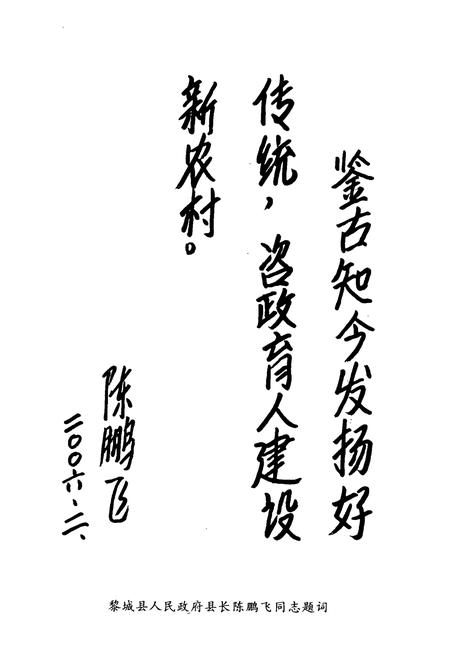 鉴古知今发扬好
传统，咨政育人建设
新农村。
陈鹏飞
二〇〇六.二.
黎城县人民政府县长陈鹏飞同志题词